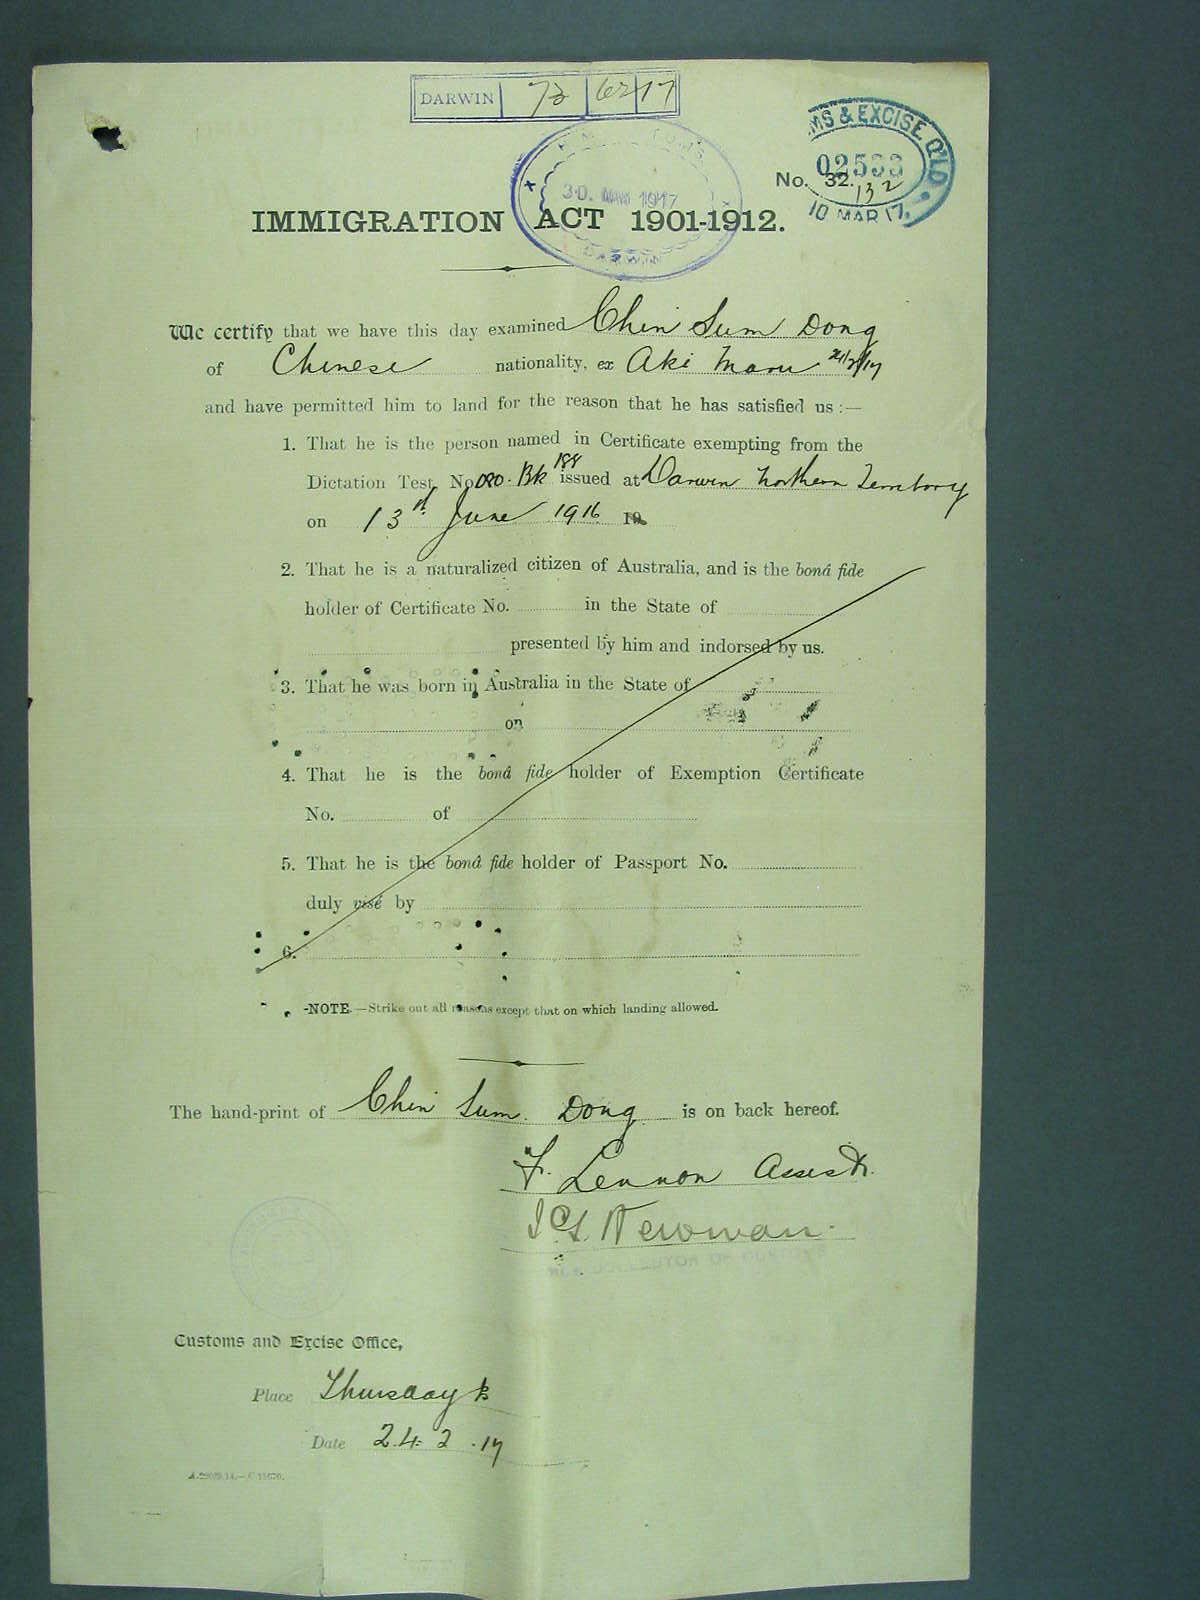 DARWIN 73 62 17
MS & EXCISE. Q'LD.
02533
No. 32.
132
10 MAR 17.
30. MAR 1917
DARWIN
IMMIGRATION ACT 1901-1912.
We certify that we have this day examined Chin Sum Dong
of Chinese nationality, ex Aki Maru 24/2/17
and have permitted him to land for the reason that he has satisfied us :—
1. That he is the person named in Certificate exempting from the
Dictation Test, No. 020. Bk 188 issued at Darwin Northern Territory
on 13th June 1916 19
2. That he is a naturalized citizen of Australia, and is the bonâ fide
holder of Certificate No. in the State of
presented by him and indorsed by us.
3. That he was born in Australia in the State of
on
4. That he is the bonâ fide holder of Exemption Certificate
No. of
5. That he is the bonâ fide holder of Passport No.
duly visé by
6.
NOTE.—Strike out all reasons except that on which landing allowed.
The hand-print of Chin Sum. Dong is on back hereof.
F. Lennon Assist
Newman.
COLLECTOR OF
Customs and Excise Office,
Place Thursday Is
Date 24. 2. 17